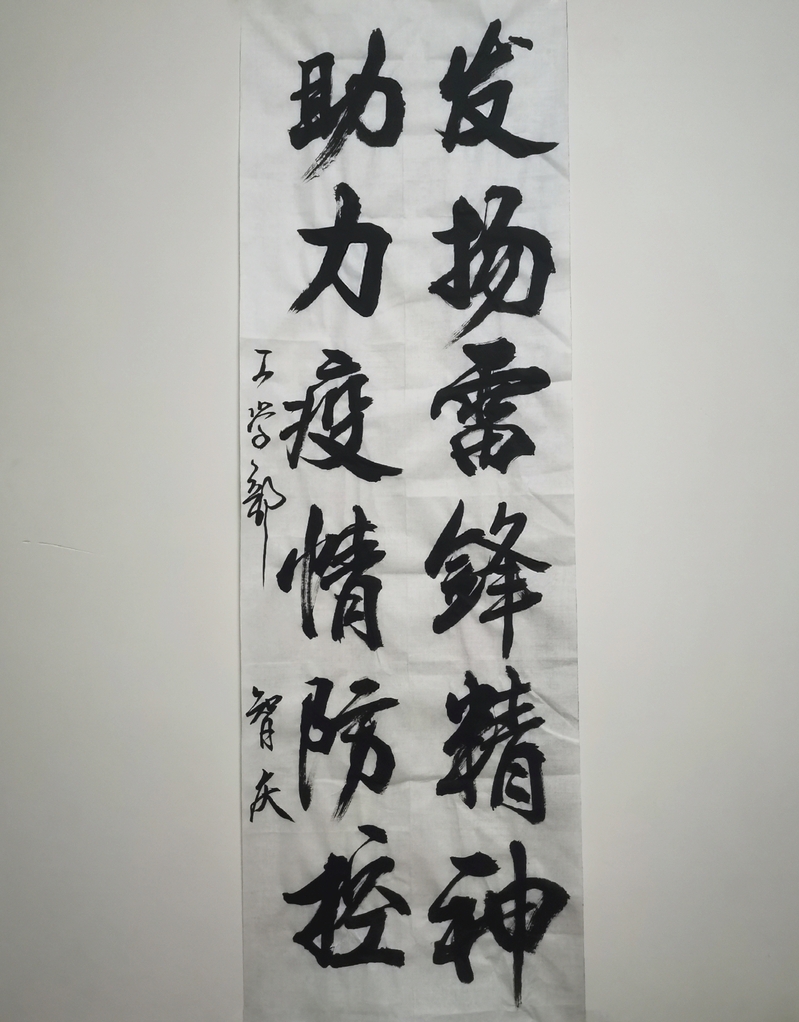 发扬雷锋精神
助力疫情防控
工学部 智庆